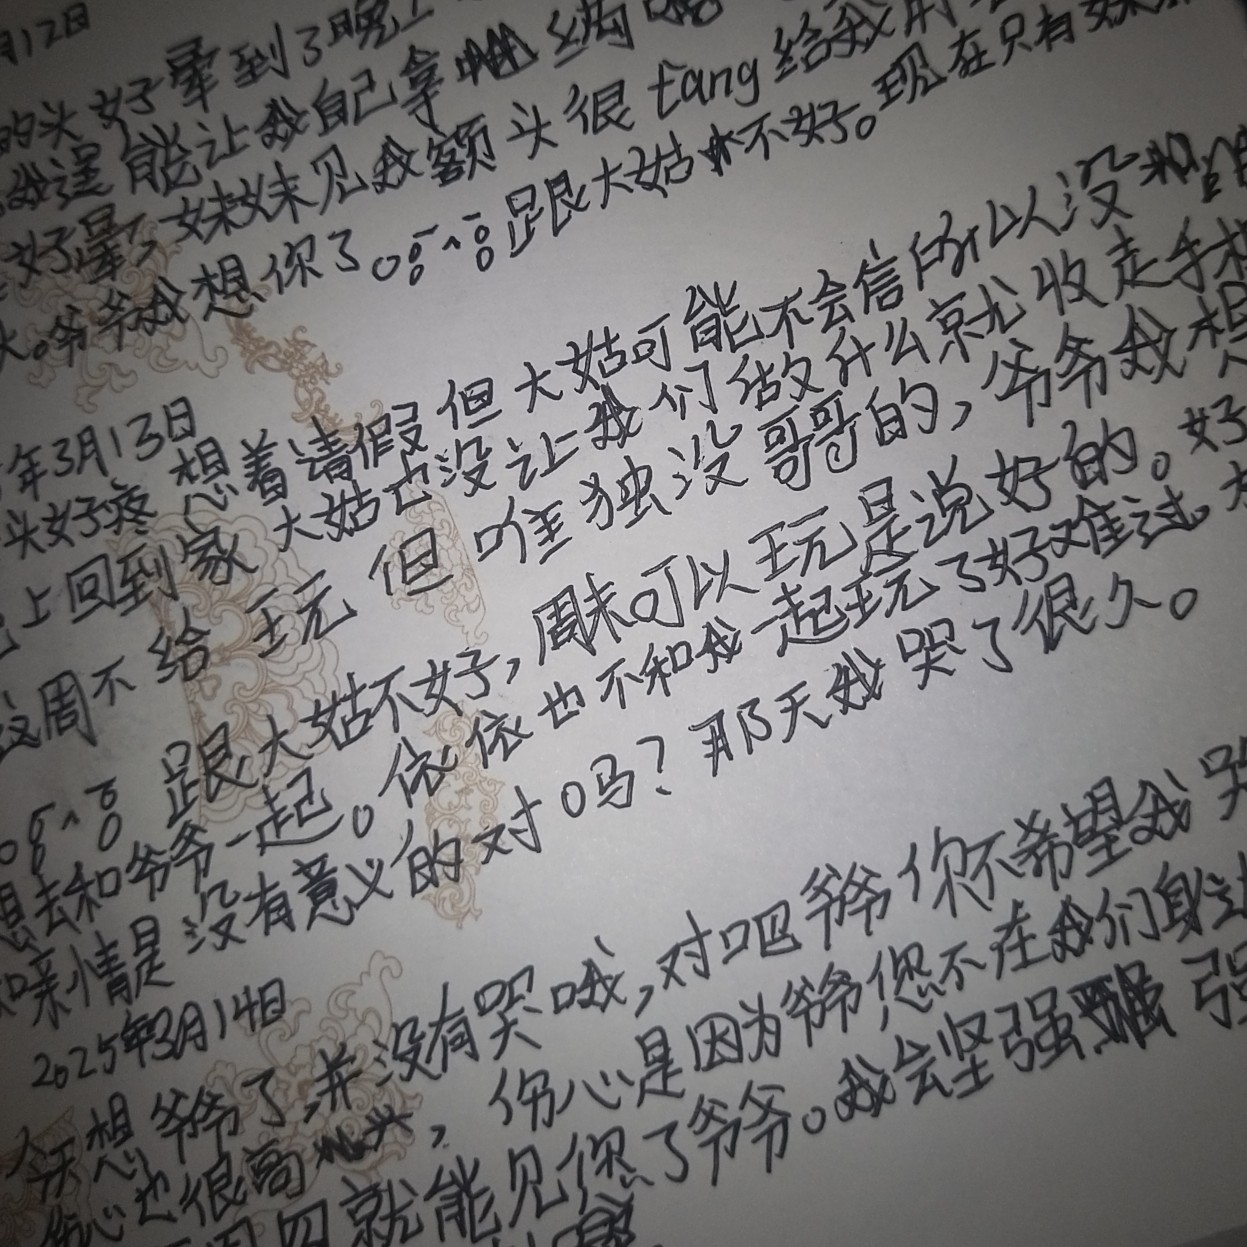 月12日
的头好晕到了晚上
能让我自己拿
好晕，妹妹见我额头很tang给我
头。爷爷我想你了。跟大姑不好。现在只有妹
年3月13日
头好疼 想着请假但大姑可能不会信的所以没
上回到家 大姑也没让我们做什么就收走手机
这周不给玩 但唯独没哥哥的，爷爷我想
跟大姑不好，周末可以玩是说好的。好
想去和爷爷一起。依依也不和我一起玩了好难过
亲情是没有意义的对吗？那天我哭了很久。
2025年3月14日
今天想爷爷了，并没有哭哦，对吧爷爷你不希望我哭
伤心也很高兴，伤心是因为爷爷您不在我们身边
周四就能见您了爷爷。我会坚强 强